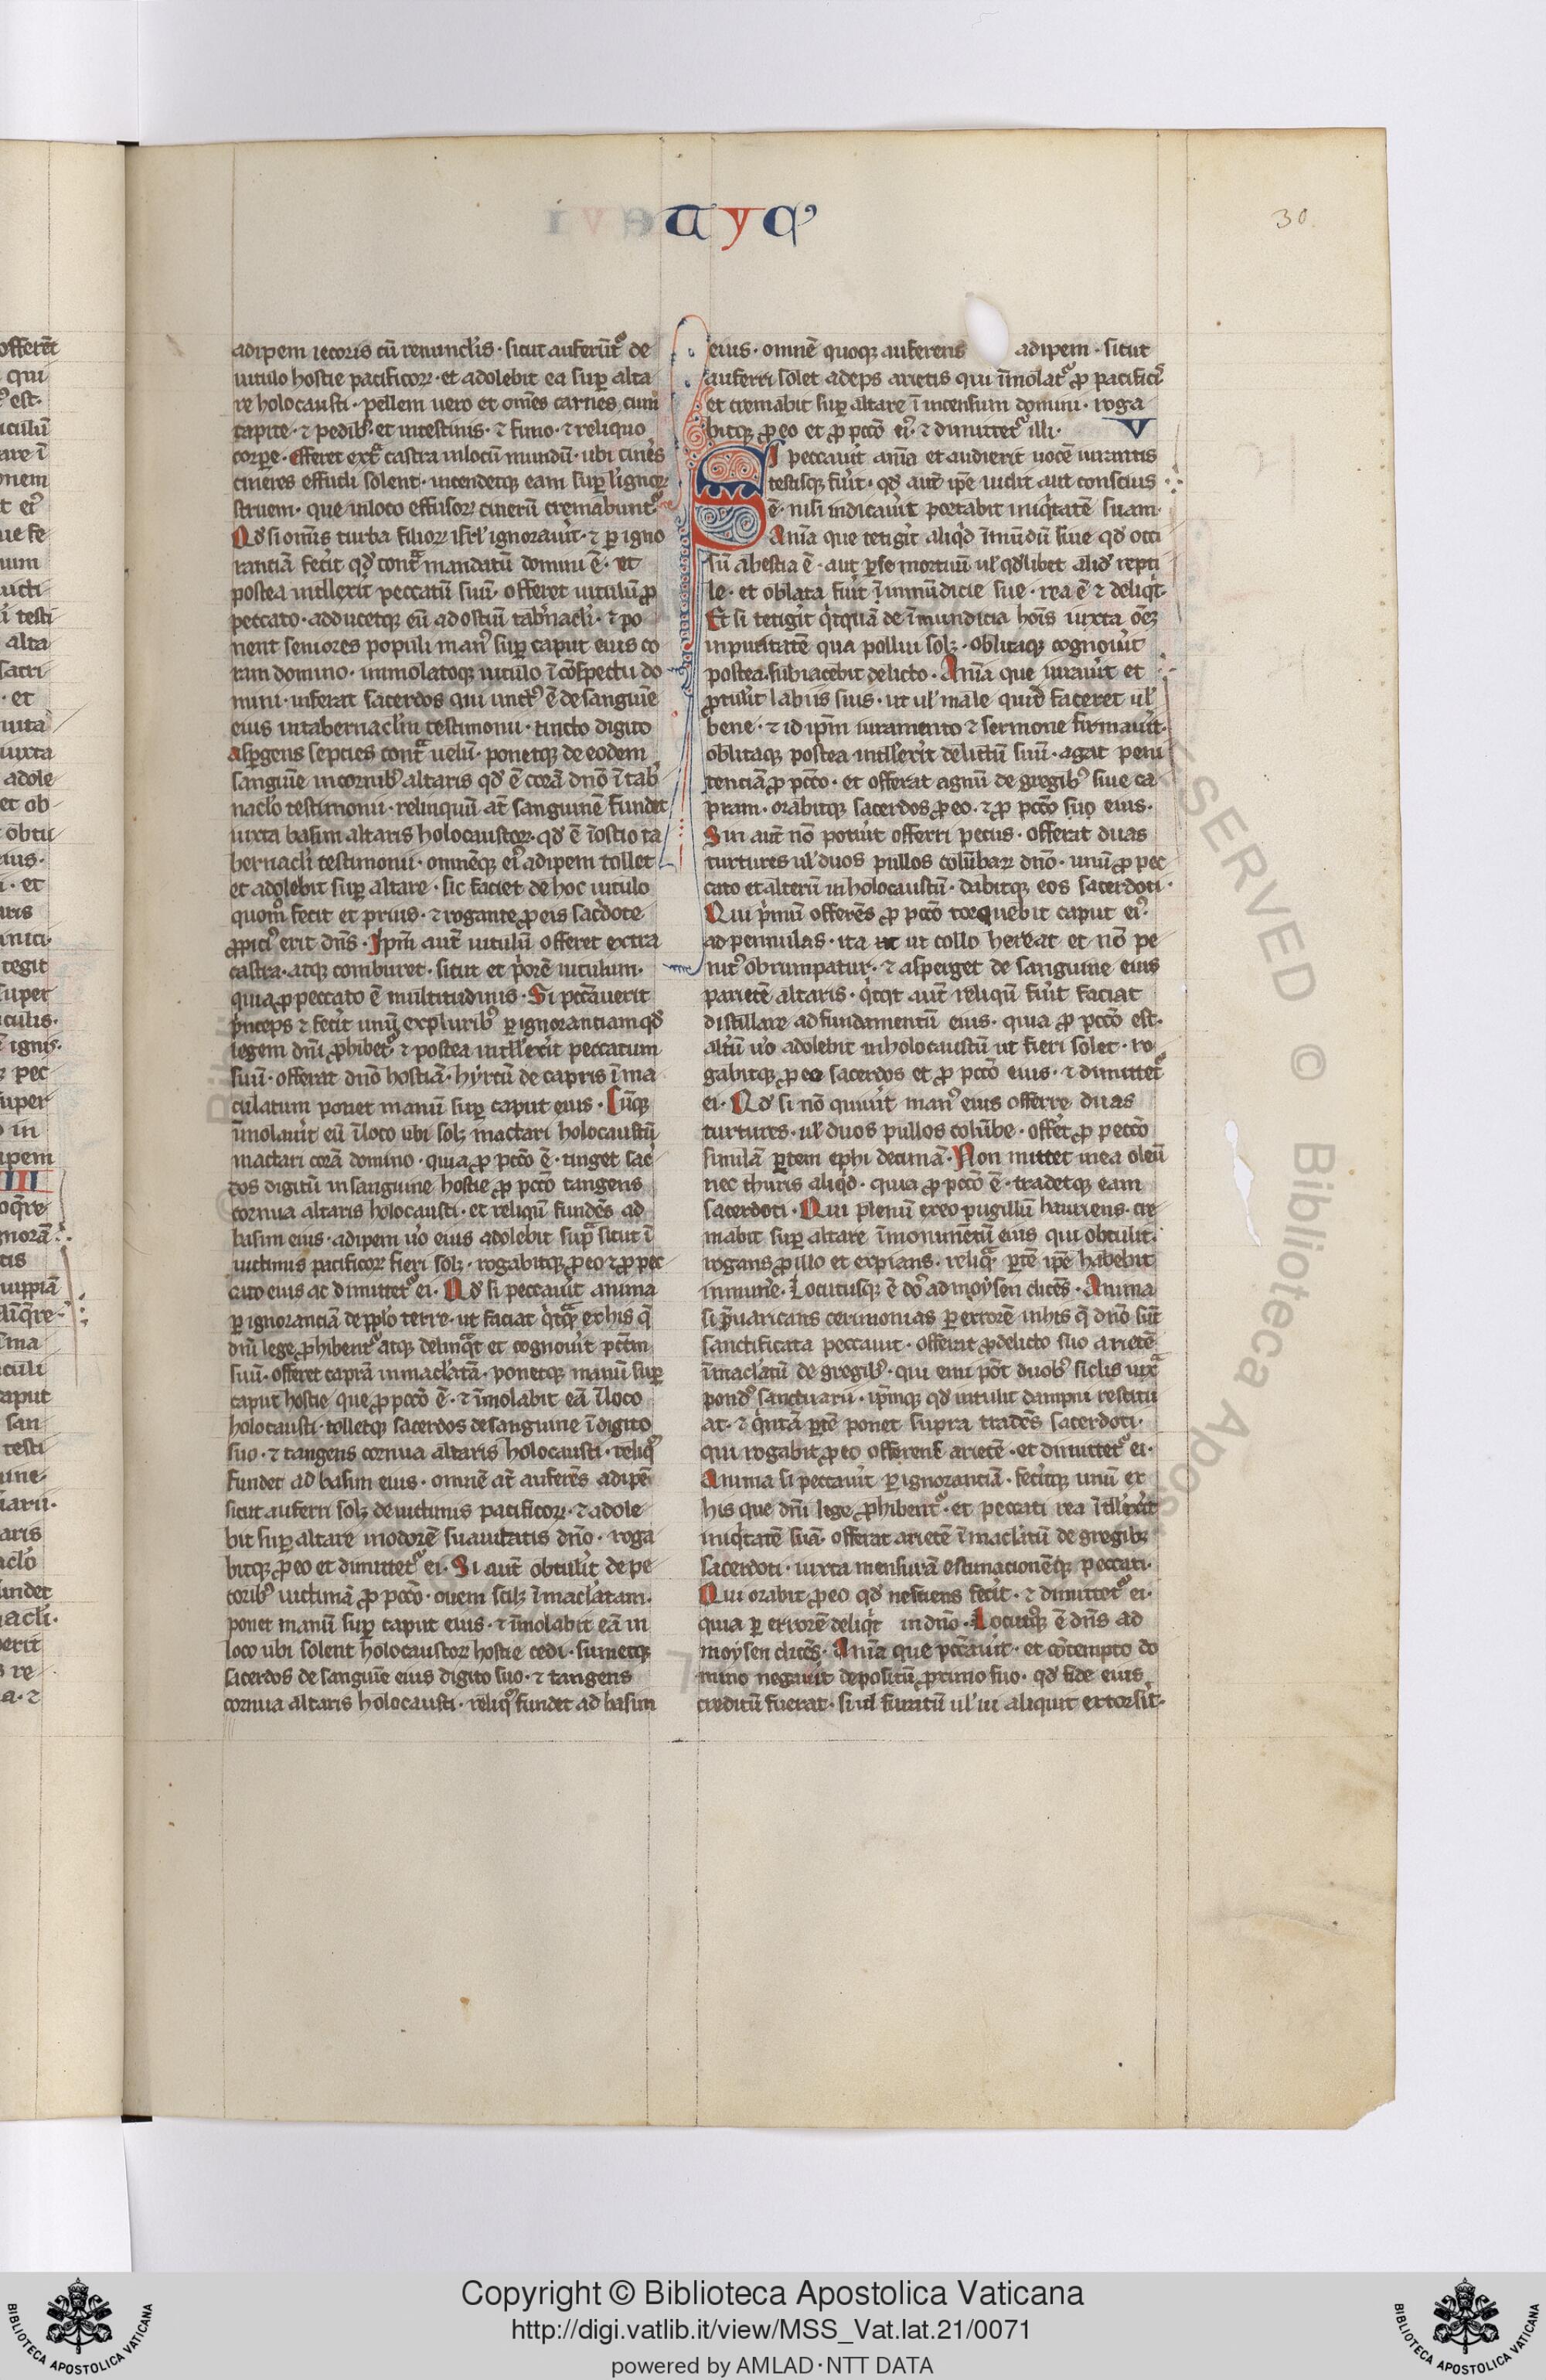 TYCꝰ
30
adipem iecoris cū renunclis · sicut aufert᷑ de
uitulo hostie pacificoꝝ · et adolebit ea suꝑ alta
re holocausti · pellem uero et om̄es carnes cum
capite · ⁊ pedibꝰ · et intestinis · ⁊ fimo · ⁊ reliquo
corpore · efferet ext̾ castra in locū mundū · ubi cineres
cineres effudi solent · incendetqꝫ eam suꝑ lignoꝝ
struem · que in loco effusoꝝ cinerū cremabunt᷑
Qd̓ si om̄is turba filioꝝ isrl̓ ignorauit · ⁊ ꝑ igno
rantiā fecit qd̓ cont̾ mandatū domini ē · et
postea intllexit peccatū suū · offeret uitulū ꝓ
peccato · adducetqꝫ eū ad ostiū tab̓nacli · ⁊ po
nent seniores populi manꝰ suꝑ caput eius co
ram domino · immolatoqꝫ uitulo ī cōspectu do
mini · inferat sacerdos qui unctꝰ ē de sanguīe
eius in tabernaclm testimonii · tincto digito
aspgens septies cont̾ uelū · ponetqꝫ de eodem
sanguīe in cornibꝰ altaris qd̓ ē corā dn̄o ī tab̓
naclo testimonii · reliquū at̄ sanguinē fundet
iuxta basim altaris holocaustoꝝ · qd̓ ē ī ostio ta
bernacli testimonii · omnēqꝫ eiꝰ adipem tollet
et adolebit suꝑ altare · sic faciet de hoc uitulo
quom̊ fecit et prius · ⁊ rogante ꝓ eis sac̓dote
ꝓpiciꝰ erit dn̄s · Ipm̄ aut̄ uitulū offeret extra
castra · atqꝫ comburet · sicut et p̓orē uitulum ·
quia ꝓ peccato ē multitudinis · Si pcc̄auerit
p̓nceps ⁊ fecit unū ex pluribꝰ ꝑ ignorantiam qd̓
legem dn̄i ꝓhibet᷑ · ⁊ postea intll̓exit peccatum
suū · offerat dn̄o hostiā · hyrcū de capris īma
culatum ponet manū suꝑ caput eius · Cūqꝫ
īmolauit eū ī loco ubi solꝫ mactari holocaustū
mactari corā domino · quia ꝓ pcc̄o ē · tinget sac̓
dos digitū in sanguine hostie ꝓ pcc̄o tangens
cornua altaris holocausti · et reliqū fundēs ad
basim eius · adipem u̓o eius adolebit sup̾ sicut ī
uictimis pacificoꝝ fieri solꝫ · rogabitqꝫ ꝓ eo ⁊ ꝓ pec
cato eius ac dimittet᷑ ei · Qd̓ si peccauit anima
ꝑ ignoranciā de pplo terre · ut faciat q̓cq̾ ex his q̄
dn̄i lege ꝓhibent᷑ atqꝫ delinq̾t et cognouit pct̄m
suū · offeret caprā inmacl̓atā · ponetqꝫ manū suꝑ
caput hostie que ꝓ pcc̄o ē · ⁊ īmolabit eā ī loco
holocausti · tolletqꝫ sacerdos de sanguine ī digito
suo · ⁊ tangens cornua altaris holocausti · reliqꝰ
fundet ad basim eius · omnē at̄ auferēs adipē
sicut auferri solꝫ de uictimis pacificoꝝ · ⁊ adole
bit suꝑ altare in odorē suauitatis dn̄o · roga
bitqꝫ ꝓ eo et dimittet᷑ ei · Si aut̄ obtulit de pe
coribꝰ uictimā ꝓ pcc̄o · ouem scilꝫ īmacl̓atam ·
ponet manū suꝑ caput eius · ⁊ īmolabit eā in
loco ubi solent holocaustoꝝ hostie cedi · sumetqꝫ
sacerdos de sanguīe eius digito suo · ⁊ tangens
cornua altaris holocausti · reliqꝰ fundet ad basim
eius · omnē quoqꝫ auferens adipem · sicut
auferri solet adeps arietis qui īmolat᷑ ꝓ pacificꝰ
et cremabit suꝑ altare ī incensum domini · roga
bitqꝫ ꝓ eo et ꝓ pcc̄o eiꝰ · ⁊ dimittet᷑ illi · V
SI peccauit anīa et audierit uocē iurantis
testisqꝫ fuit · qd̓ aut ip̄e uidit aut conscius
ē · nisi indicauit portabit iniq̓tatē suam ·
Anīa que tetigit aliq̓d īmūdū siue qd̓ occi
sū a bestia ē · aut ꝑ se mortuū ul̓ qd̓libet aliud repti
le · et oblita fuit īmmūdicie sue · rea ē ⁊ deliq̓t ·
Et si tetigit q̓cquā de īmundicia hoīs iuxta oēꝫ
inpuritatē qua pollui solꝫ · oblitaqꝫ cognouit
postea · subiacebit delicto · Anīa que iurauit et
ꝓtulit labiis suis · ut ul̓ male quid faceret ul̓
bene · ⁊ id ipm̄ iuramento ⁊ sermone firmauit ·
oblitaqꝫ postea intllexit delictū suū · agat peni
tenciā ꝓ pcc̄o · et offerat agnū de gregibꝰ siue ca
pram · orabitqꝫ sacerdos ꝓ eo · ⁊ ꝓ pcc̄o suo eius ·
Sin aut̄ nō potuit offerri pecus · offerat duas
turtures ul̓ duos pullos colūbaꝝ dn̄o · unū ꝓ pec
cato et alterū in holocaustū · dabitqꝫ eos sacerdoti ·
Qui p̓mū offerēs ꝓ pcc̄o torquebit caput eiꝰ ·
ad pennulas · ita ut collo hereat et nō pe
nitꝰ obrumpatur · ⁊ asperget de sanguine eius
parietē altaris · q̓cqt aut̄ reliqū fuit faciat
distillare ad fundamentū eius · quia ꝓ pcc̄o est ·
altū u̓o adolebit in holocaustū ut fieri solet · ro
gabitqꝫ ꝓ eo sacerdos et ꝓ pcc̄o eius · ⁊ dimittet᷑
ei · Qd̓ si nō quiuit manꝰ eius offerre duas
turtures · ul̓ duos pullos colūbe · offet ꝓ peccō
similā ꝑtem ephi decimā · Non mittet in ea oleū
nec thuris aliq̓d · quia ꝓ pcc̄o ē · tradetqꝫ eam
sacerdoti · Qui plenū ex eo pugillū hauriens · cre
mabit suꝑ altare ī monimētū eius qui obtulit ·
rogans ꝓ illo et expians · reliq̾ ꝑtē ip̄e habebit
in mun̓e · Locutusqꝫ ē dn̄s ad moysen dicēs · Anima
si p̄uaricans cerimonias ꝑ errorē in his q̄ dn̄o sūt
sanctificata peccauit · offerat ꝓ delicto suo arietē
īmacl̓atū de gregibꝰ · qui emi pōt duobꝰ siclis iux̾
pondꝰ sanctuarii · ipmqꝫ qd̓ intulit dampni restitu
at · ⁊ q̓ntā ꝑtē ponet supra tradēs sacerdoti ·
qui rogabit ꝓ eo offerens arietē · et dimittet᷑ ei ·
Anima si peccauit ꝑ ignoranciā · fecitqꝫ unū ex
his que dn̄i lege ꝓhibent᷑ · et peccati rea ītllexit
iniq̓tatē suā · offerat arietē īmacl̓atū de gregibꝫ
sacerdoti · iuxta mensurā estimacionēqꝫ peccati ·
Qui orabit ꝓ eo qd̓ nesciens fecit · ⁊ dimittet᷑ ei ·
quia ꝑ errorē deliq̓t in dn̄o · Locutꝰqꝫ ē dn̄s ad
moysen dicēs · Anīa que pcc̄auit · et cōtempto do
mino negauit depositū ꝓximo suo · qd̓ fide eius
creditū fuerat · siue ul̓ furatū ul̓ ui aliquit extorsit ·
Copyright © Biblioteca Apostolica Vaticana
http://digi.vatlib.it/view/MSS_Vat.lat.21/0071
powered by AMLAD·NTT DATA
BIBLIOTECA APOSTOLICA VATICANA
BIBLIOTECA APOSTOLICA VATICANA